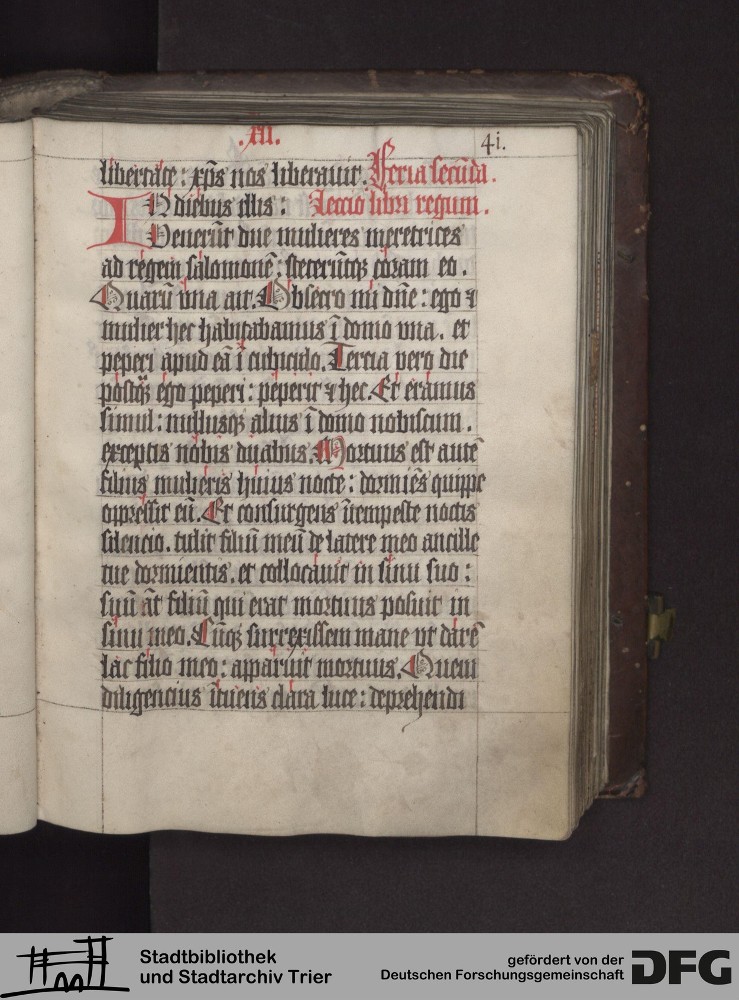 .xii.
4i.
libertate : xp̄s nos liberauit. Feria secūda.
IN diebus illis : Leccio libri regum.
Venerūt due mulieres meretrices
ad regem salomonē : steterūtqꝫ coram eo.
Quarū vna ait. Obsecro mi dn̄e : ego ⁊
mulier hec habitabamus ī domo vna. et
peperi apud eā ī cubiculo. Tercia vero die
postqꝫ ego peperi : peperit ⁊ hec. Et eramus
simul : nullusqꝫ alius ī domo nobiscum.
exceptis nobis duabus. Mortuus est autē
filius mulieris huius nocte : dormiēs quippe
oppressit eū. Et consurgens ītempeste noctis
silencio. tulit filiū meū de latere meo ancille
tue dormientis. et collocauit in sinu suo :
suū āt filiū qui erat mortuus posuit in
sinu meo. Cūqꝫ surrexissem mane vt darē
lac filio meo : apparuit mortuus. Quem
diligencius ītuens clara luce : deprehendi
Stadtbibliothek
und Stadtarchiv Trier
gefördert von der
Deutschen Forschungsgemeinschaft
DFG